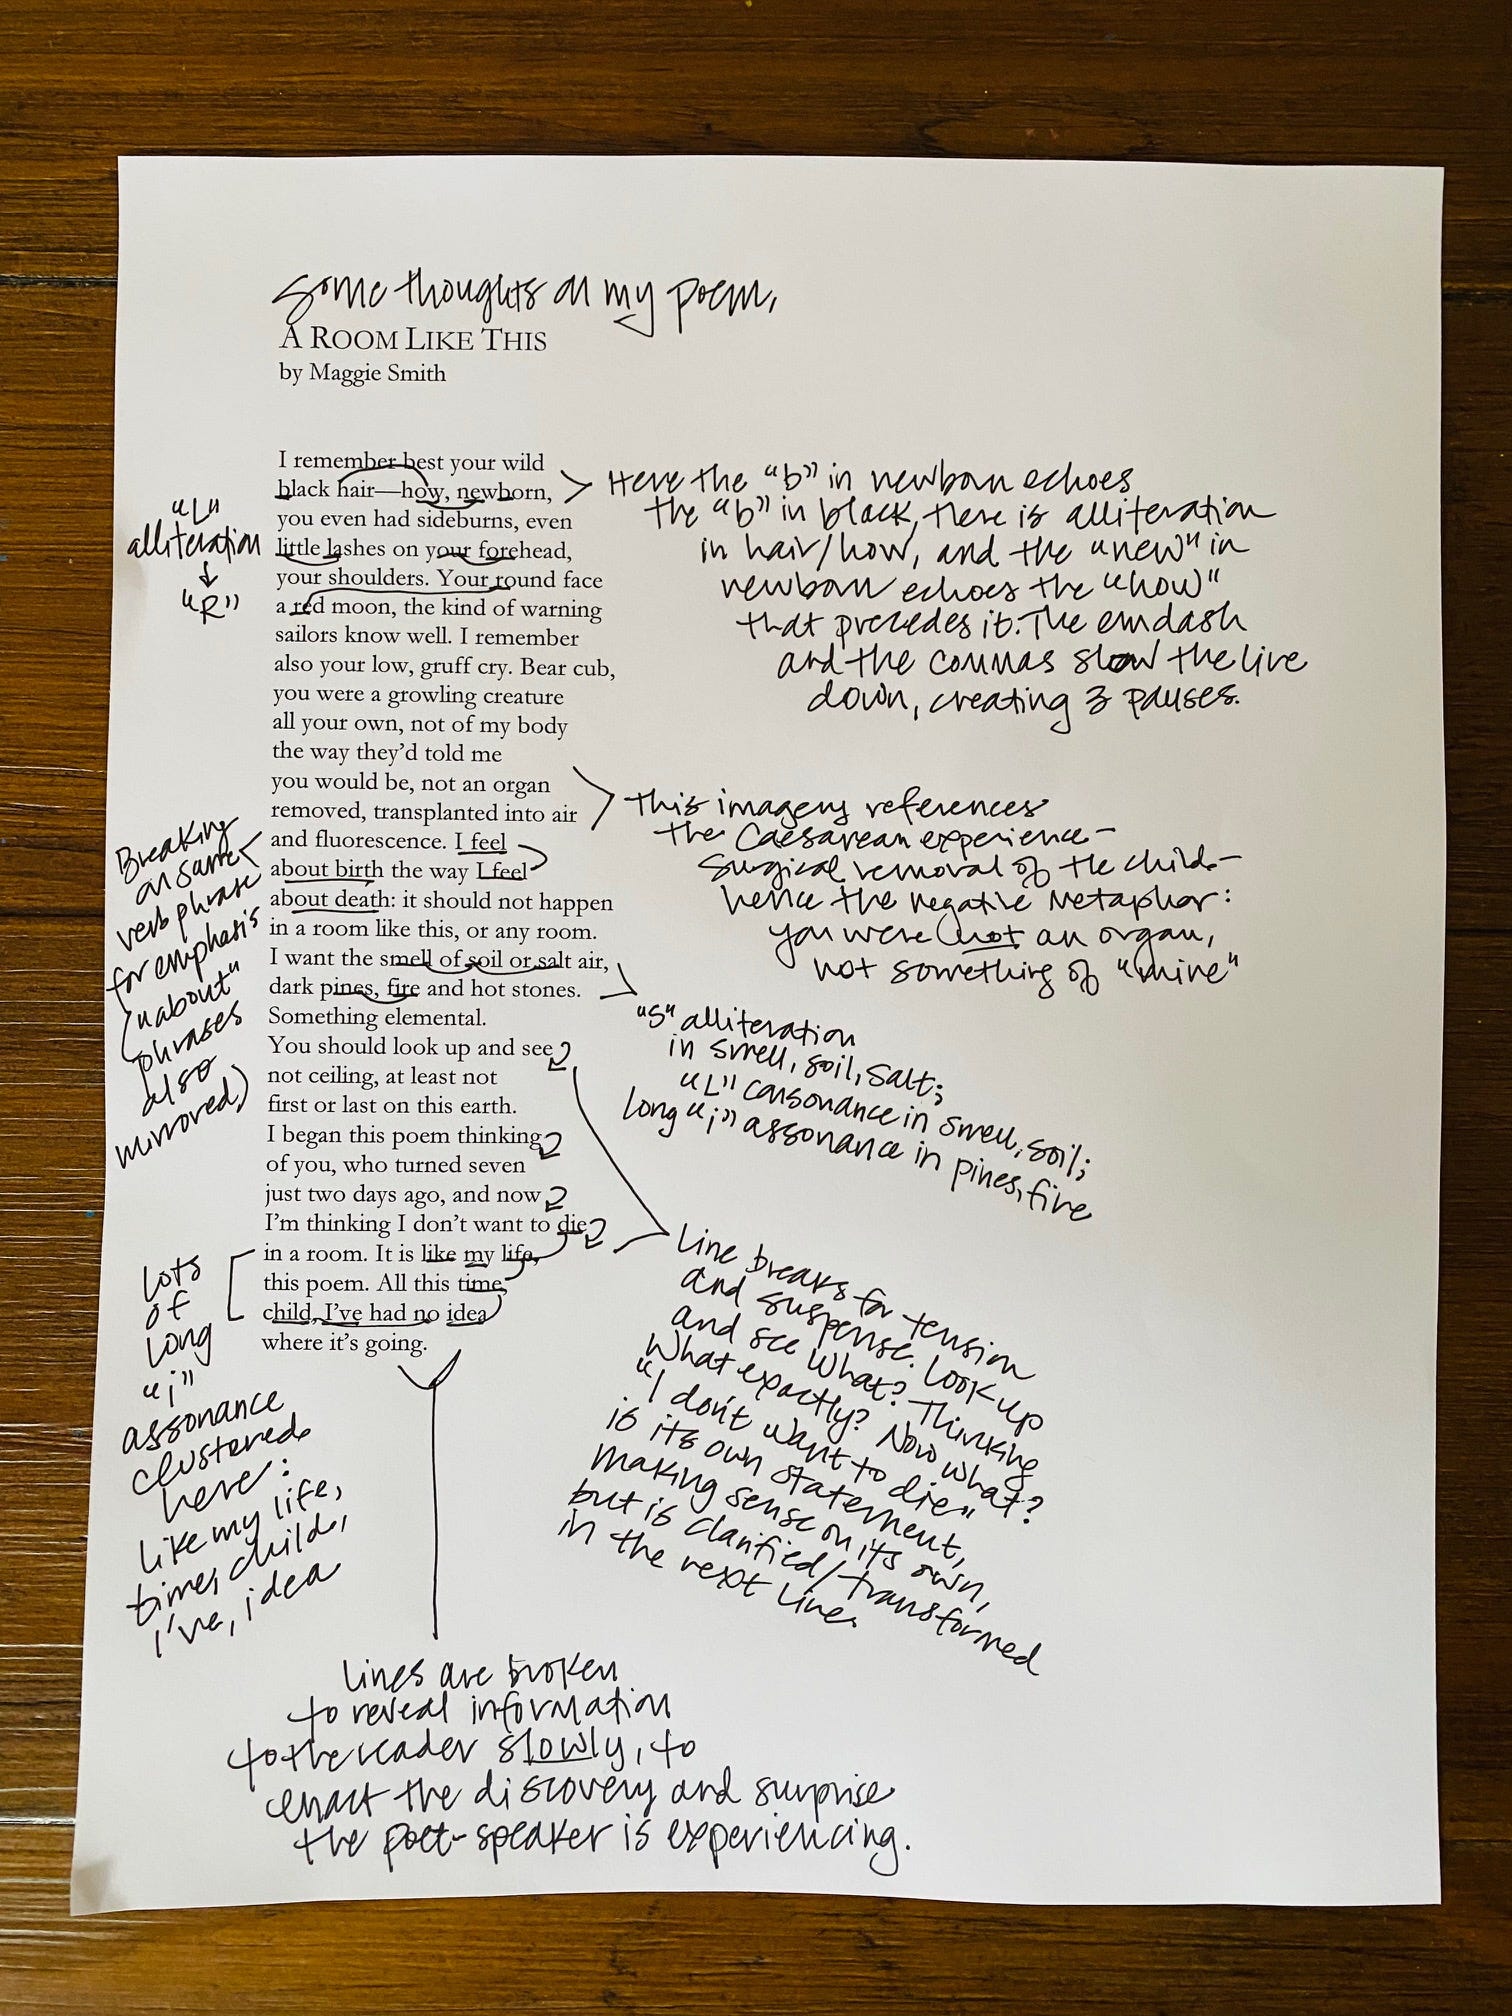 Some thoughts on my poem,
A ROOM LIKE THIS
by Maggie Smith
I remember best your wild
black hair—how, newborn,
you even had sideburns, even
little lashes on your forehead,
your shoulders. Your round face
a red moon, the kind of warning
sailors know well. I remember
also your low, gruff cry. Bear cub,
you were a growling creature
all your own, not of my body
the way they'd told me
you would be, not an organ
removed, transplanted into air
and fluorescence. I feel
about birth the way I feel
about death: it should not happen
in a room like this, or any room.
I want the smell of soil or salt air,
dark pines, fire and hot stones.
Something elemental.
You should look up and see
not ceiling, at least not
first or last on this earth.
I began this poem thinking
of you, who turned seven
just two days ago, and now
I'm thinking I don't want to die
in a room. It is like my life,
this poem. All this time,
child, I've had no idea
where it's going.
"L"
alliteration
"R"
Breaking
on same
verb phrase
for emphasis
("about"
phrases
also
mirrored)
Lots
of
long
"i"
assonance
clustered
here:
like my life,
time, child,
I've, idea
Here the "b" in newborn echoes
the "b" in black, there is alliteration
in hair/how, and the "new" in
newborn echoes the "how"
that precedes it. The emdash
and the commas slow the line
down, creating 3 pauses.
This imagery references
the Caesarean experience—
surgical removal of the child—
hence the negative metaphor:
you were not an organ,
not something of "mine"
"S" alliteration
in smell, soil, salt;
"L" consonance in smell, soil;
long "i" assonance in pines, fire
Line breaks for tension
and suspense. Look up
and see what? Thinking
what exactly? Now what?
"I don't want to die"
is its own statement,
making sense on its own,
but is clarified/transformed
in the next line.
Lines are broken
to reveal information
to the reader slowly, to
enact the discovery and surprise
the poet-speaker is experiencing.